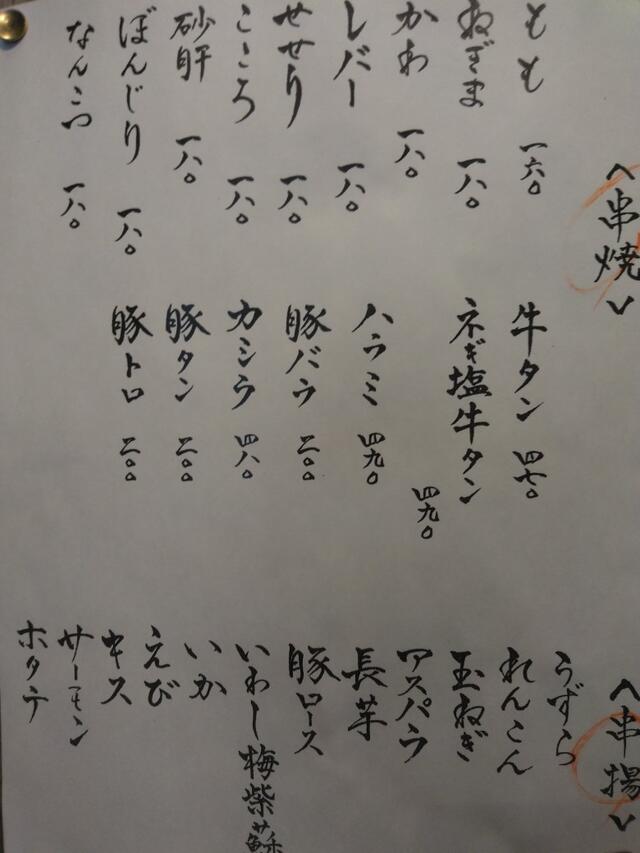 〈串焼〉
もも 一六〇
ねぎま 一八〇
かわ 一八〇
レバー 一八〇
せせり 一八〇
こころ 一八〇
砂肝 一八〇
ぼんじり 一八〇
なんこつ 一八〇
牛タン 四七〇
ネギ塩牛タン 四九〇
ハラミ 四九〇
豚バラ 二〇〇
カシラ 四八〇
豚タン 二〇〇
豚トロ 二〇〇
〈串揚〉
うずら
れんこん
玉ねぎ
アスパラ
長芋
豚ロース
いわし梅紫蘇
いか
えび
キス
サーモン
ホタテ